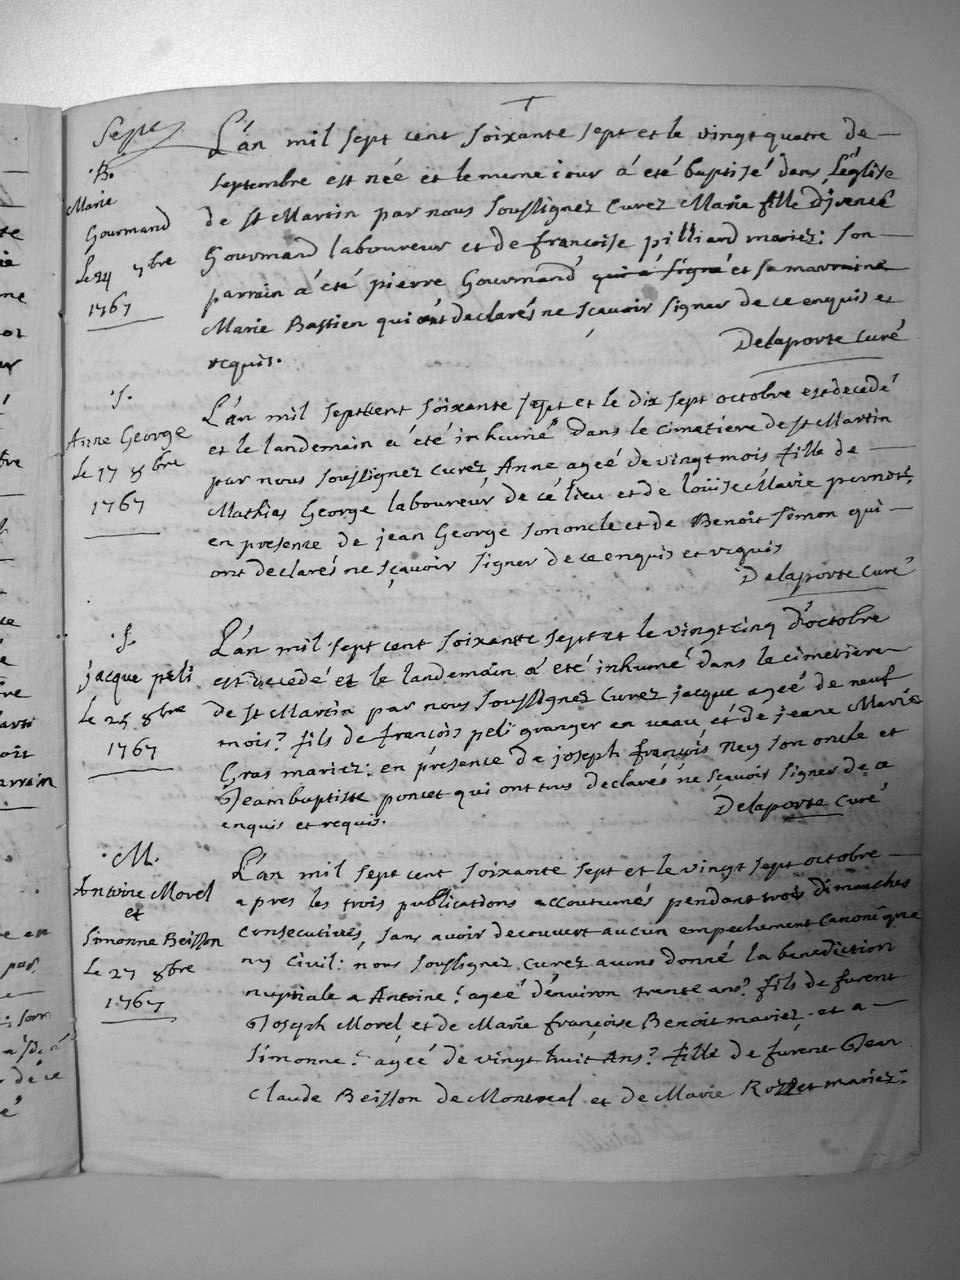 Sept
B.
Marie
Gourmand
Le 24 7bre
1767
L'an mil sept cent soixante sept et le vingt quatre de
septembre est née et le meme iour á eté baptisé dans L'église
de st Martin par nous soussignez Curez Marie fille d'
Gourmand laboureur et de françoise pilliard mariez: son
parrain á été pierre Gourmand qui á signé et sa marraine
Marie Bastien qui ont declarés ne sçavoir signer de ce enquis et
requis.
Delaporte Curé
S.
Anne George
Le 17 8bre
1767
L'an mil sept cent soixante sept et le dix sept octobre est decedé
et le landemain á été inhumé dans le cimetiere de st Martin
par nous soussignez Curez Anne ageé de vingt mois fille de
Mathias George laboureur de cé lieu et de loüise Marie pernot;
en presence de jean George son oncle et de Benoit Simon qui
ont declarés ne sçavoir signer de ce enquis et requis
Delaporte Curé
S.
jacque peli
Le 25 8bre
1767
L'an mil sept cent soixante sept et le vingt cinq d'octobre
est decedé et le landemain á eté inhumé dans le cimetiere
de st Martin par nous soussignez Curez jacque ageé de neuf
mois? fils de françois peli granger en veau et de jeane Marie
Gras mariez: en présence de joseph françois Ney son oncle et
Jean baptiste poncet qui ont tous declarés né sçavoir signer de ce
enquis et requis.
Delaporte Curé
M.
Antoine Morel
et
Simonne Beisson
Le 27 8bre
1767
L'an mil sept cent soixante sept et le vingt sept octobre
apres les trois publications accoutumés pendant trois dimanches
consecutives, sans avoir decouvert aucun empechement Canonique
ny Civil: nous soussignez Curez avons donné la benediction
nuptiale a Antoine? ageé d'énviron trente ans? fils de furent
Joseph Morel et de Marie françoise Benoit mariez. et a
Simonne? ágéé de vingt huit Ans? fille de furent Jean
Claude Beisson de Montreal et de Marie Rozet mariez: